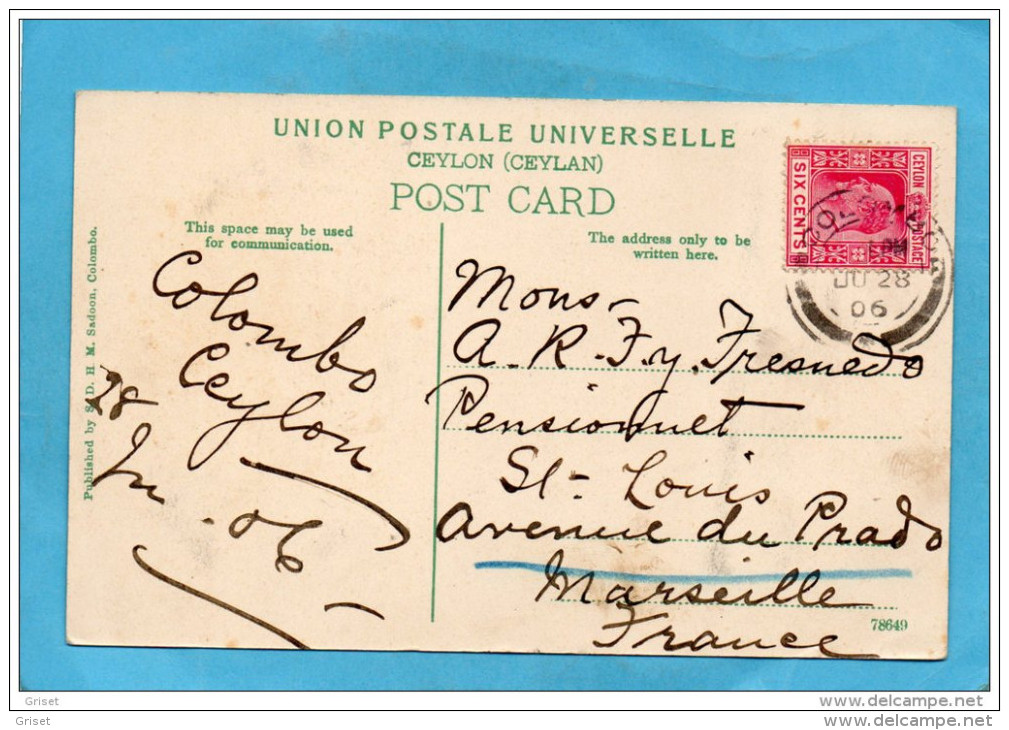 UNION POSTALE UNIVERSELLE
CEYLON (CEYLAN)
POST CARD
This space may be used
for communication.
The address only to be
written here.
CEYLON POSTAGE
SIX CENTS
JU 28
06
Published by S. D. H. M. Sadoon, Colombo.
Colombo
Ceylon
28
Ju
.06
Mons-
A. R. F. y. Fresnedo
Pensionnet
St- Louis
Avenue du Prado
Marseille
France
78649
Griset
Griset
delcampe.net
delcampe.net